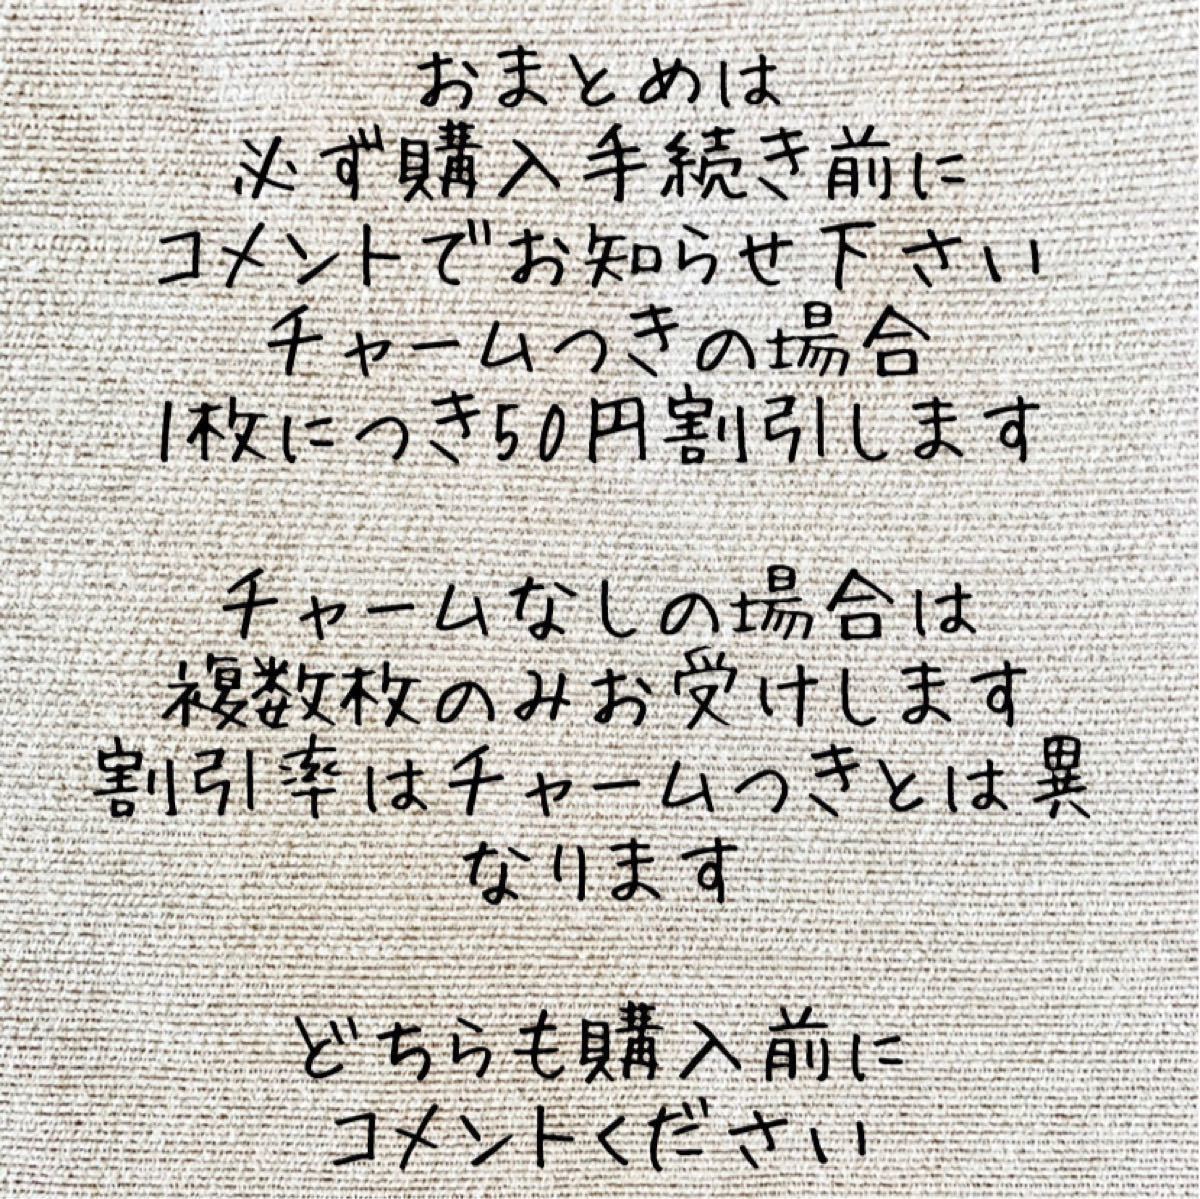 おまとめは
必ず購入手続き前に
コメントでお知らせ下さい
チャームつきの場合
1枚につき50円割引します
チャームなしの場合は
複数枚のみお受けします
割引率はチャームつきとは異
なります
どちらも購入前に
コメントください